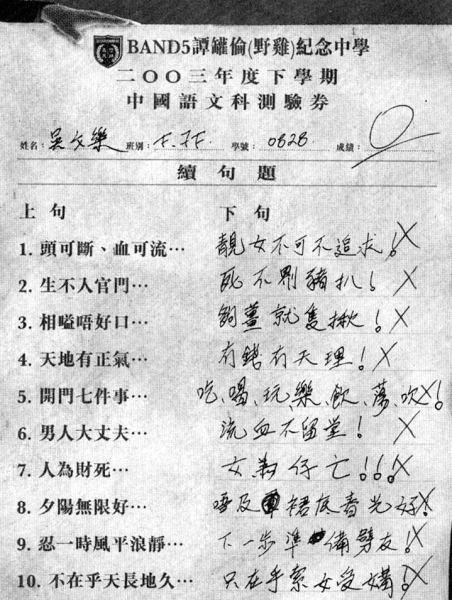 BAND5譚罐偷(野雞)紀念中學
二〇〇三年度下學期
中國語文科測驗券
姓名：吳文樂 班別： 學號：0828 成績：0
續句題
上句 下句
1. 頭可斷、血可流… 靚女不可不追求！
2. 生不入官門… 死不劏豬扒！
3. 相嗌唔好口… 夠薑就隻揪！
4. 天地有正氣… 有錢有天理！
5. 開門七件事… 吃、喝、玩、樂、飲、蕩、吹！
6. 男人大丈夫… 流血不留堂！
7. 人為財死… 女為仔亡！！！
8. 夕陽無限好… 唔及裙底春光好！
9. 忍一時風平浪靜… 下一步準備劈友！
10. 不在乎天長地久… 只在乎索女受媾！